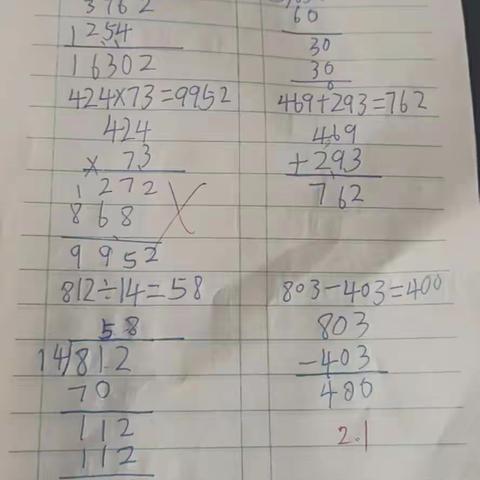 3762
1254
16302
424×73=9952
424
× 73
1272
868
9952
812÷14=58
58
14 812
70
112
112
60
30
30
0
469+293=762
469
+293
762
803-403=400
803
-403
400
2.1